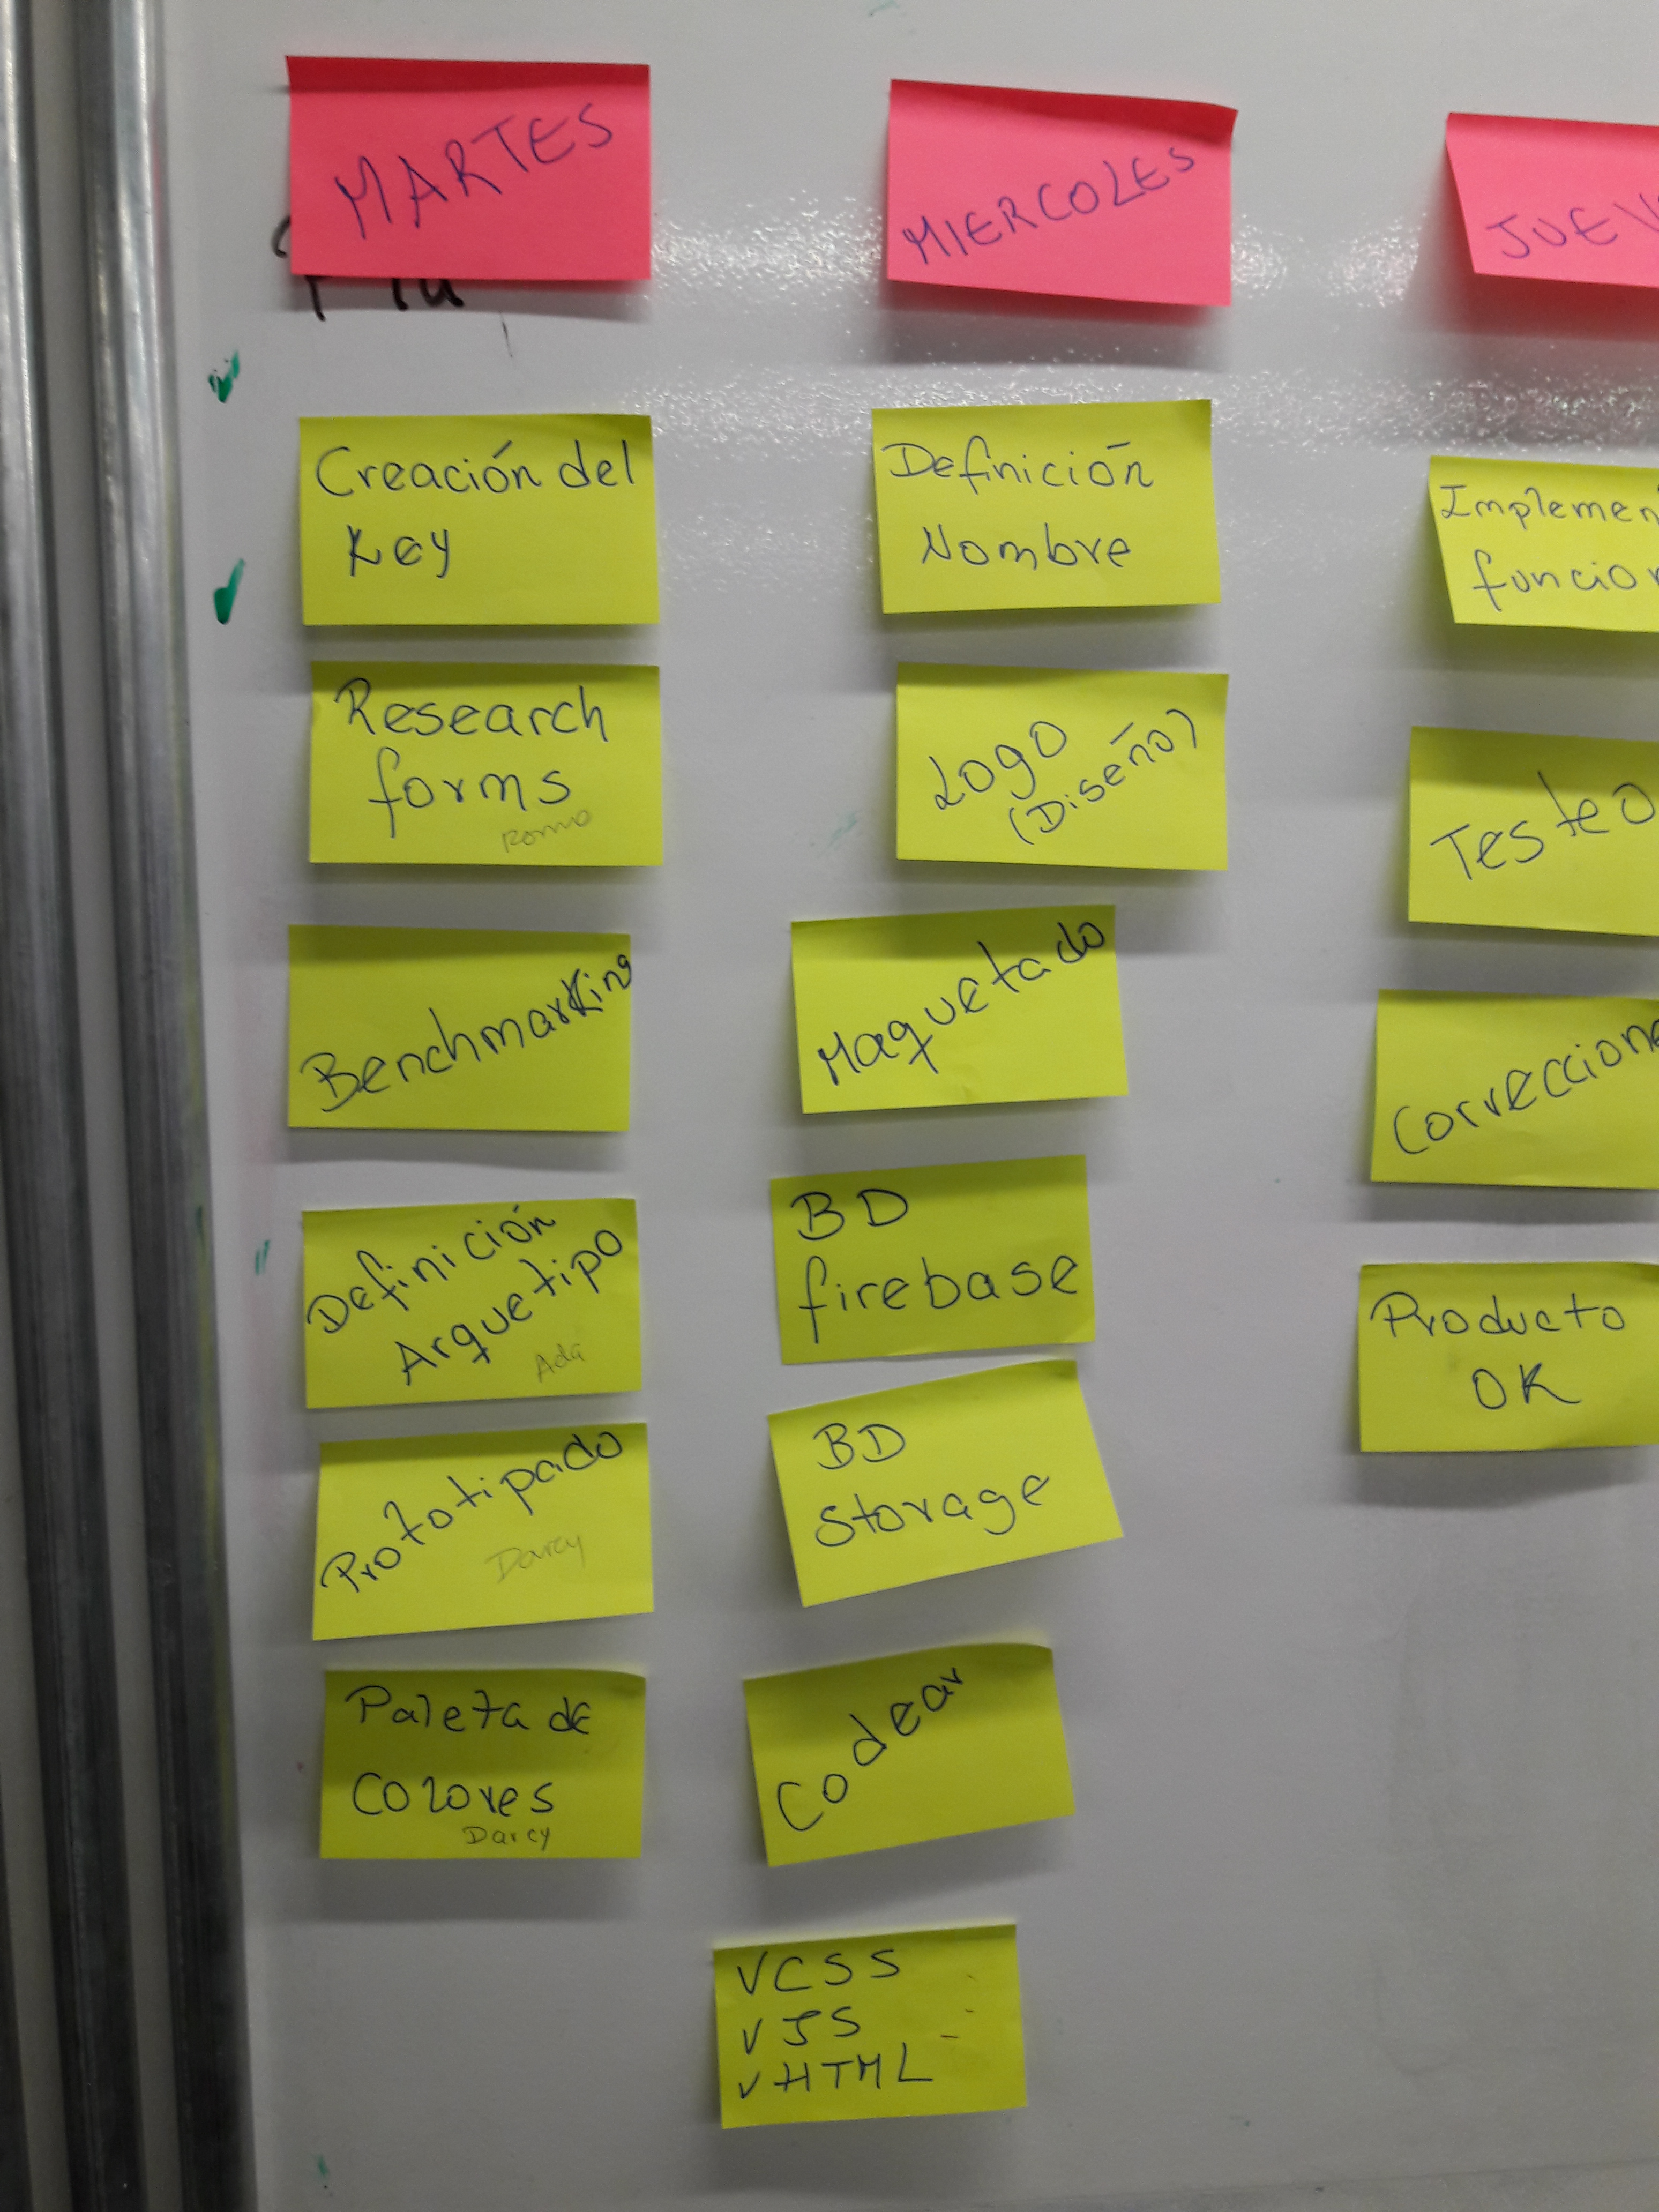 MARTES
Creación del
Key
Research
forms
Romo
Benchmarking
Definición
Arquetipo
Ada
Prototipado
Darcy
Paleta de
Colores
Darcy
MIERCOLES
Definición
Nombre
Logo
(Diseño)
Maquetado
BD
firebase
BD
Storage
Codear
✓CSS
✓JS
✓HTML
JUEV
Implemen
funcion
Testeo
Correccione
Producto
OK